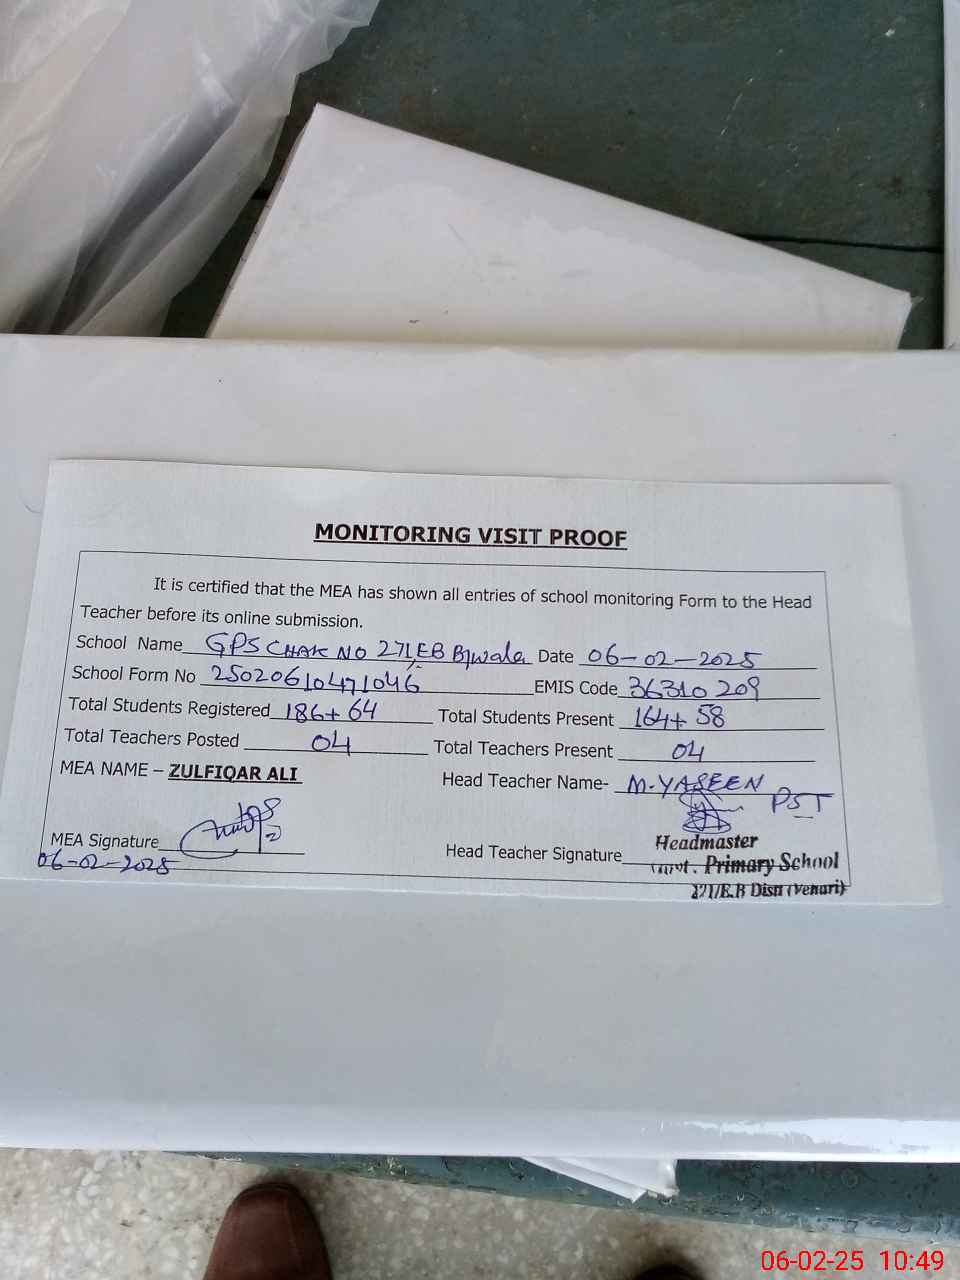 MONITORING VISIT PROOF
It is certified that the MEA has shown all entries of school monitoring Form to the Head
Teacher before its online submission.
School Name GPS CHAK NO 271/EB Date 06-02-2025
School Form No 25020610471046 EMIS Code 36310209
Total Students Registered 186+64 Total Students Present 164+58
Total Teachers Posted 04 Total Teachers Present 04
MEA NAME – ZULFIQAR ALI Head Teacher Name- M.YASEEN PST
MEA Signature Head Teacher Signature
06-02-2025
Headmaster
Govt. Primary School
271/E.B Distt (Vehari)
06-02-25 10:49